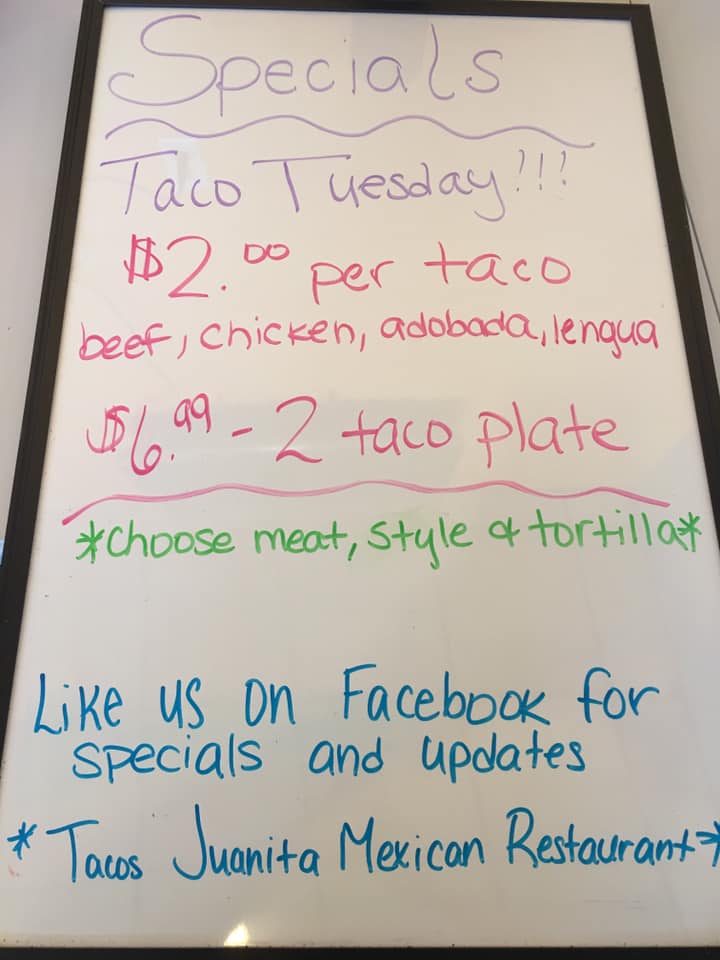 Specials
Taco Tuesday!!!
$2.00 per taco
beef, chicken, adobada, lengua
$6.99 - 2 taco plate
*Choose meat, style & tortilla*
Like us on Facebook for
specials and updates
*Tacos Juanita Mexican Restaurant*